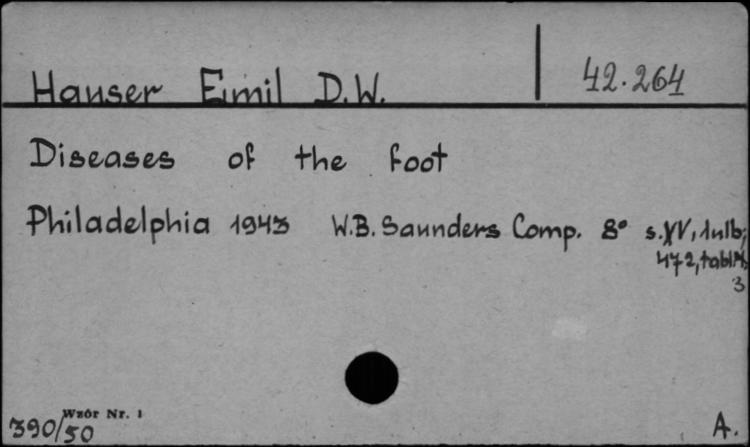 Hauser Emil D.W. 42.264
Diseases of the foot
Philadelphia 1943 W.B. Saunders Comp. 8° s.XV, 1nlb,
472, tabl.
3
Wzór Nr. 1
390/50
A.